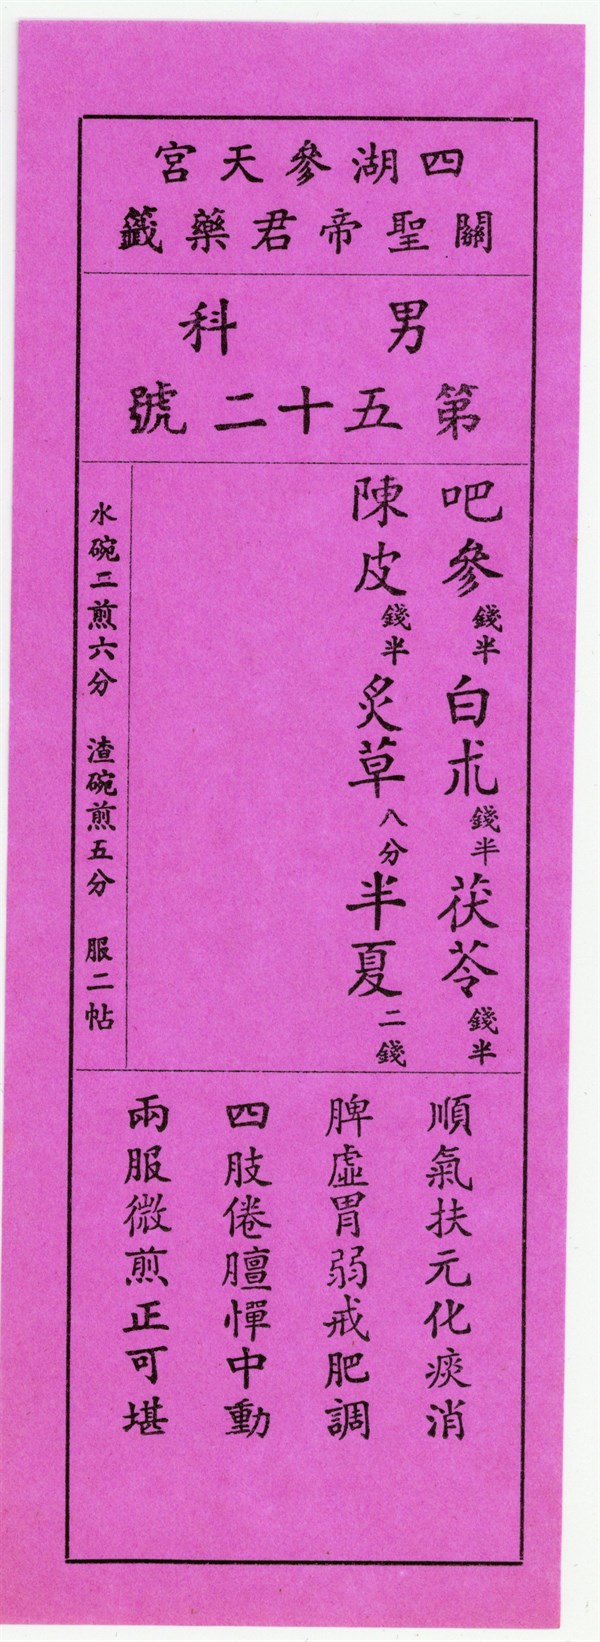 四湖參天宮
關聖帝君藥籤
男科
第五十二號
吧參錢半白朮錢半茯苓錢半
陳皮錢半炙草八分半夏二錢
水碗二煎六分 渣碗煎五分 服二帖
順氣扶元化痰消
脾虛胃弱戒肥調
四肢倦膻憚中動
兩服微煎正可堪